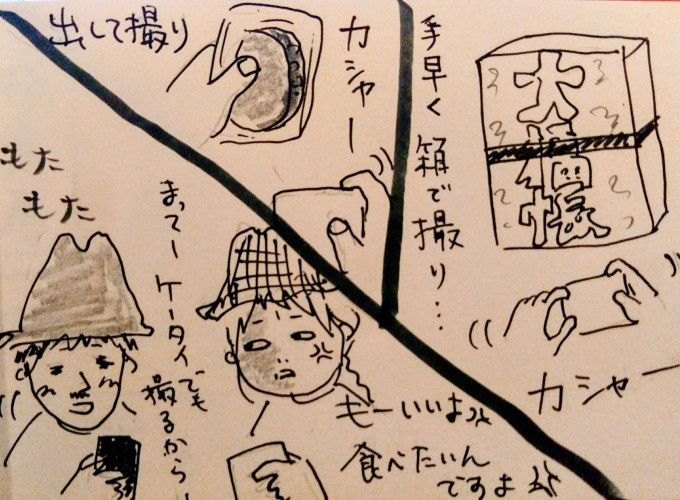 大
手早く箱で撮り…
カシャー
出して撮り
カシャー
もーいいよ
食べたいん
ですよ
まってー ケータイでも
撮るからー
もた
もた